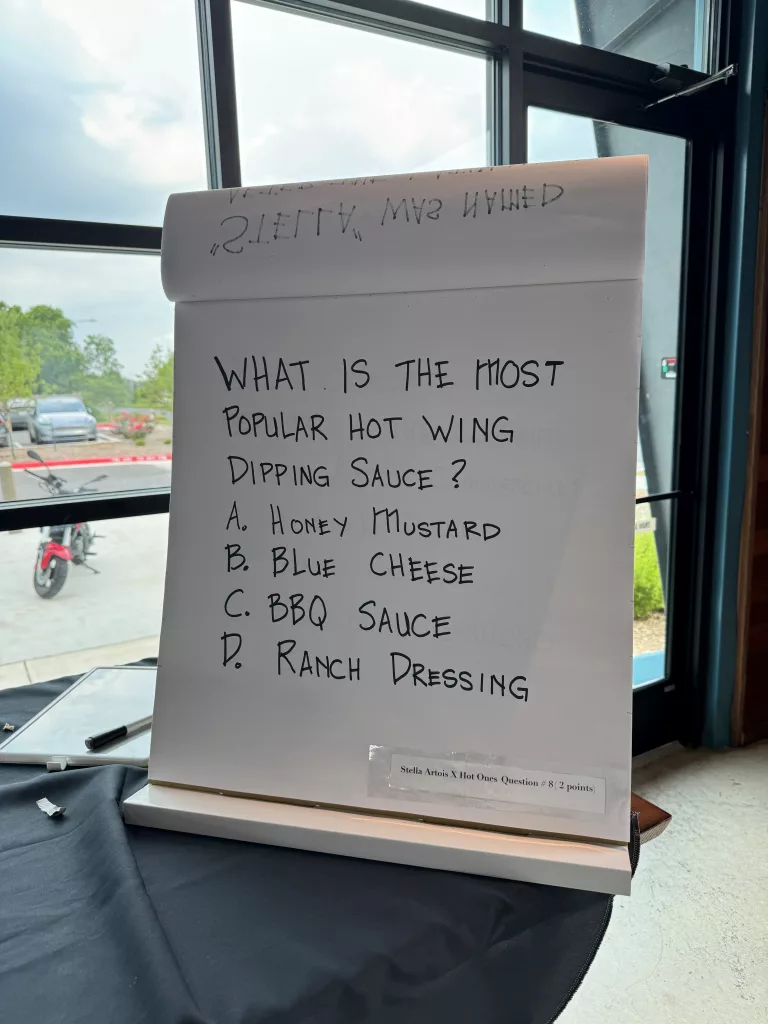 "STELLA" WAS NAMED
WHAT IS THE MOST
POPULAR HOT WING
DIPPING SAUCE?
A. HONEY MUSTARD
B. BLUE CHEESE
C. BBQ SAUCE
D. RANCH DRESSING
Stella Artois X Hot Ones Question # 8( 2 points)